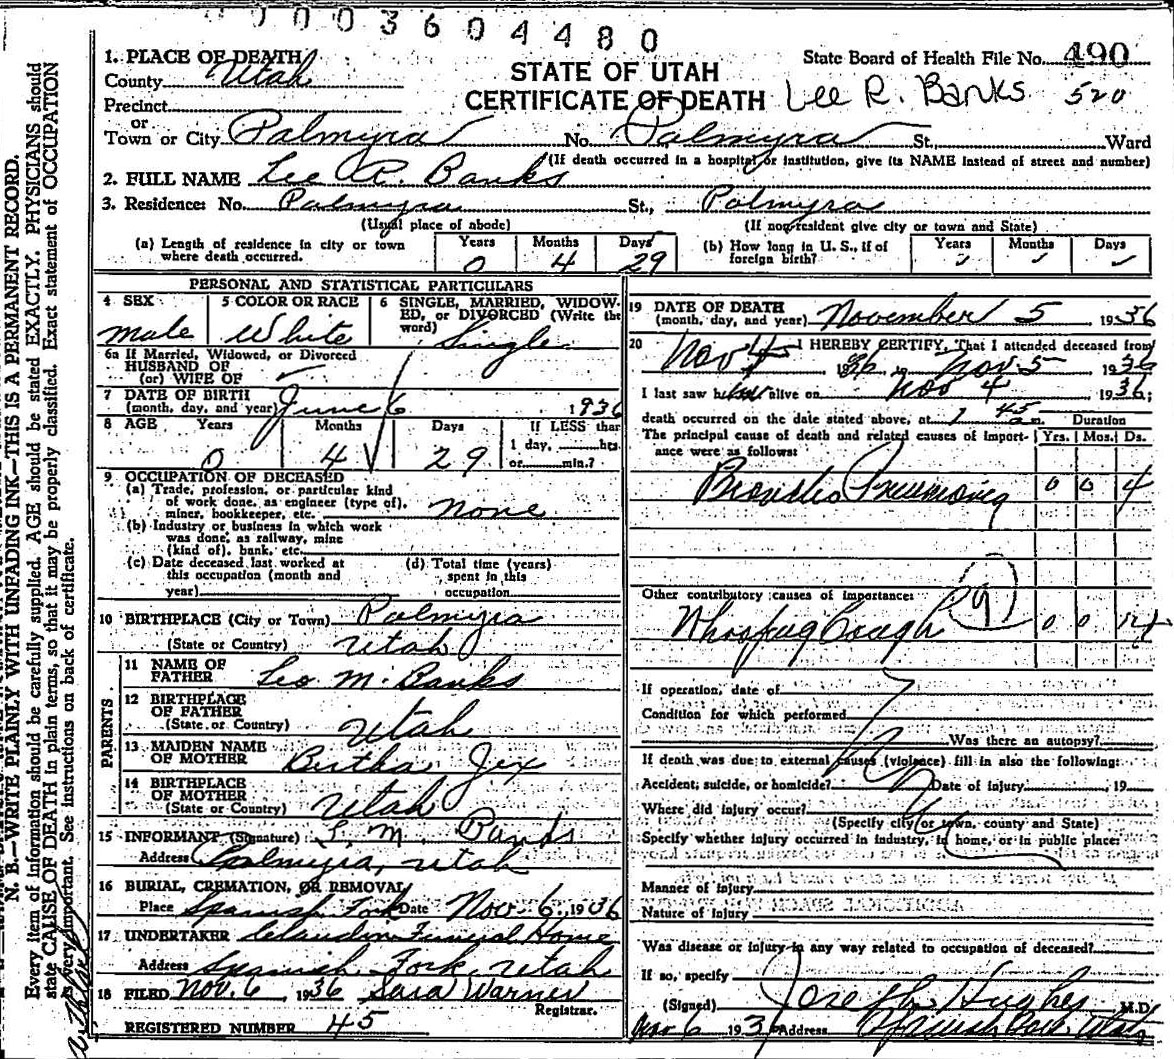 0003604480
1. PLACE OF DEATH
State Board of Health File No. 490
County Utah
STATE OF UTAH
Precinct
CERTIFICATE OF DEATH Lee R. Banks 520
or
Town or City Palmyra No. Palmyra St., Ward
(If death occurred in a hospital or institution, give its NAME instead of street and number)
2. FULL NAME Lee R. Banks
3. Residence: No. Palmyra St., Palmyra
(Usual place of abode) (If non-resident give city or town and State)
(a) Length of residence in city or town where death occurred. Years 0 Months 4 Days 29
(b) How long in U. S., if of foreign birth? Years Months Days
PERSONAL AND STATISTICAL PARTICULARS
4 SEX male
5 COLOR OR RACE White
6 SINGLE, MARRIED, WIDOWED, or DIVORCED (Write the word) Single
6a If Married, Widowed, or Divorced
HUSBAND OF
(or) WIFE OF
7 DATE OF BIRTH
(month, day, and year) June 6 1936
8 AGE Years 0 Months 4 Days 29
If LESS than
1 day, hrs.
or min.?
9 OCCUPATION OF DECEASED
(a) Trade, profession, or particular kind
of work done, as engineer (type of),
miner, bookkeeper, etc. none
(b) Industry or business in which work
was done, as railway, mine
(kind of), bank, etc.
(c) Date deceased last worked at
this occupation (month and
year)
(d) Total time (years)
spent in this
occupation
10 BIRTHPLACE (City or Town) Palmyra
(State or Country) Utah
PARENTS
11 NAME OF
FATHER Leo M. Banks
12 BIRTHPLACE
OF FATHER
(State or Country) Utah
13 MAIDEN NAME
OF MOTHER Bertha Jex
14 BIRTHPLACE
OF MOTHER
(State or Country) Utah
15 INFORMANT (Signature) L. M. Banks
Address Palmyra, Utah
16 BURIAL, CREMATION, OR REMOVAL
Place Spanish Fork Date Nov. 6, 1936
17 UNDERTAKER Claudin Funeral Home
Address Spanish Fork, Utah
18 FILED Nov. 6 1936 Sara Warner
Registrar.
REGISTERED NUMBER 45
19 DATE OF DEATH
(month, day, and year) November 5 1936
20 I HEREBY CERTIFY, That I attended deceased from
Nov 4 1936 to Nov. 5 1936
I last saw h alive on Nov 4 1936;
death occurred on the date stated above, at 1 45 a.m. Duration
The principal cause of death and related causes of importance were as follows: Yrs. Mos. Ds.
Broncho Pneumonia 0 0 4
Other contributory causes of importance: 9
Whooping Cough 0 0 14
If operation, date of
Condition for which performed
Was there an autopsy?
If death was due to external causes (violence) fill in also the following:
Accident, suicide, or homicide? Date of injury 19
Where did injury occur?
(Specify city or town, county and State)
Specify whether injury occurred in industry, in home, or in public place:
Manner of Injury
Nature of Injury
Was disease or injury in any way related to occupation of deceased?
If so, specify
(Signed) Joseph Hughes M.D.
Nov 6 193 Address Spanish Fork, Utah
N. B.—WRITE PLAINLY WITH UNFADING INK—THIS IS A PERMANENT RECORD.
Every item of information should be carefully supplied. AGE should be stated EXACTLY. PHYSICIANS should
state CAUSE OF DEATH in plain terms, so that it may be properly classified. Exact statement of OCCUPATION
is very important. See instructions on back of certificate.